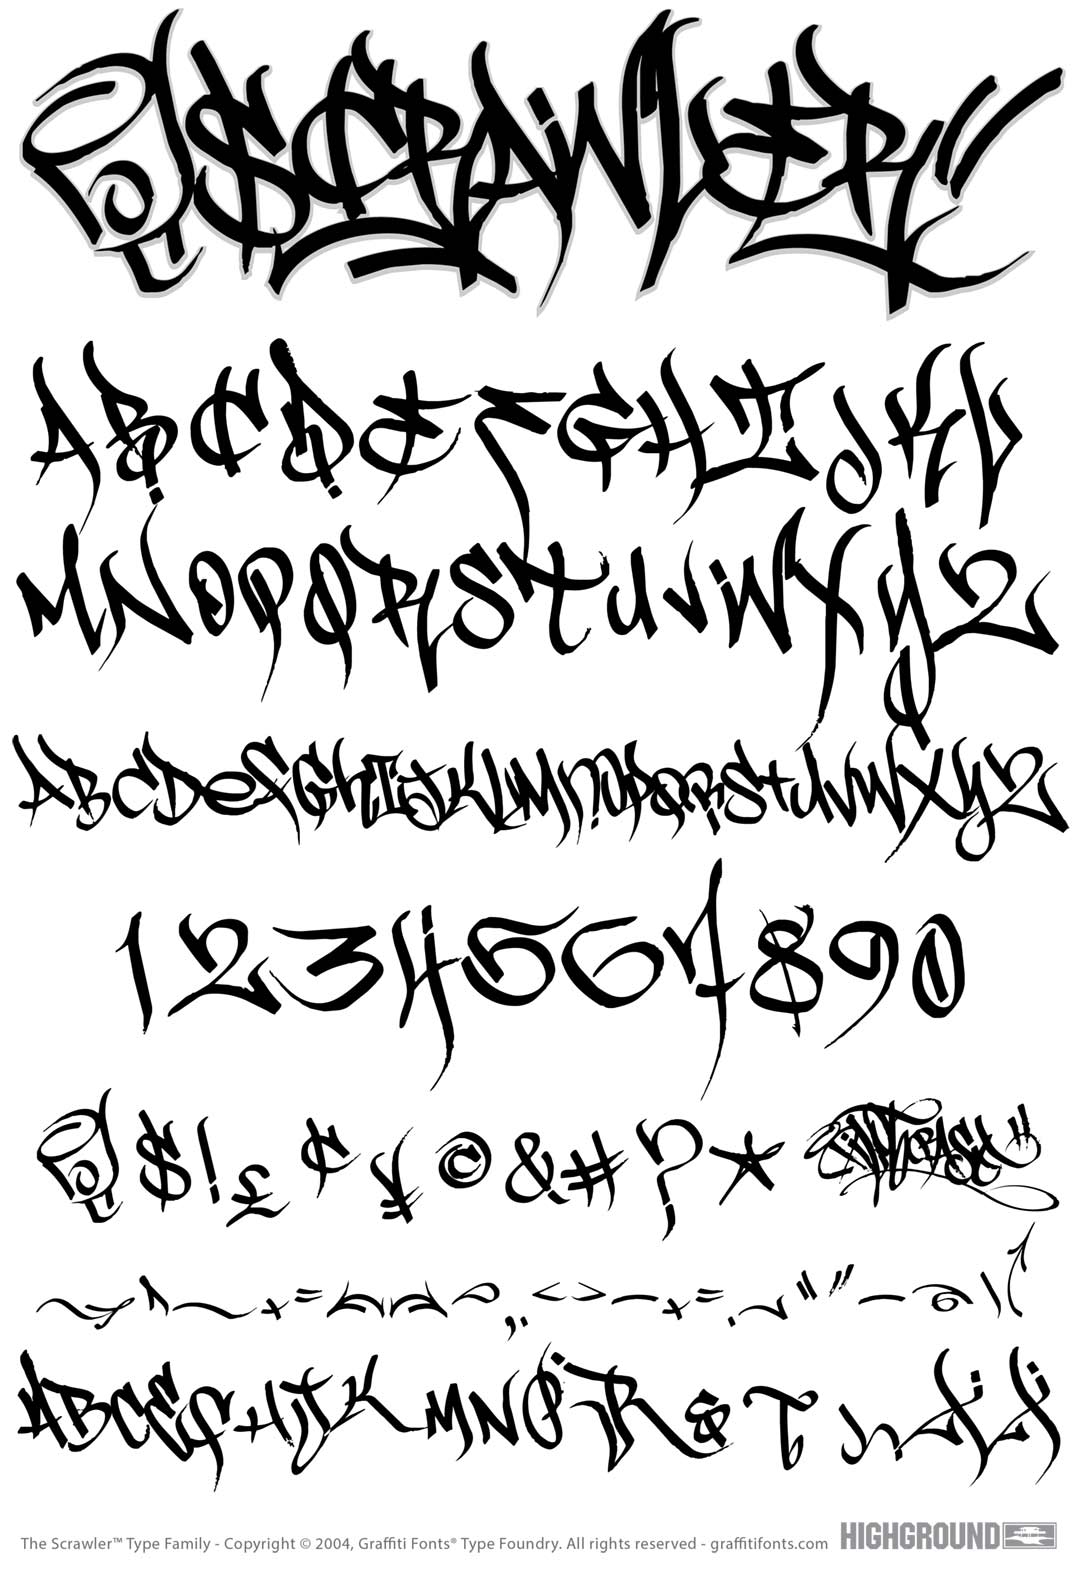 SCRAWLER
ABCDEFGHIJKL
MNOPQRSTUVWXYZ
ABCDeFGHIJKLMNOPQRSTUVWXYZ
1234567890
@$!£¢¥©&#?*
ABCEFHIJKMNOR&T
The Scrawler™ Type Family - Copyright © 2004, Graffiti Fonts® Type Foundry. All rights reserved - graffitifonts.com HIGHGROUND